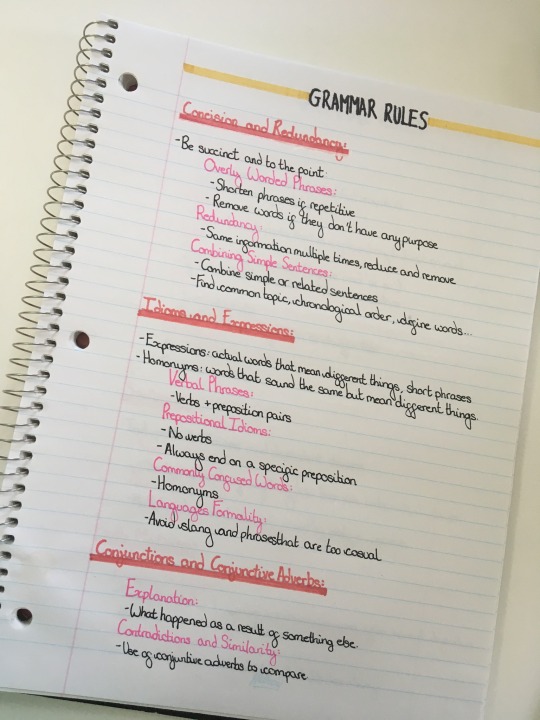 GRAMMAR RULES
Concision and Redundancy:
-Be succinct and to the point.
Overly Worded Phrases:
-Shorten phrases if repetitive
-Remove words if they don't have any purpose
Redundancy:
-Same information multiple times, reduce and remove
Combining Simple Sentences:
-Combine simple or related sentences
-Find common topic, chronological order, define words...
Idioms and Expressions:
-Expressions: actual words that mean different things, short phrases
-Homonyms: words that sound the same but mean different things.
Verbal Phrases:
-Verbs + preposition pairs
Prepositional Idioms:
-No verbs
-Always end on a specific preposition
Commonly Confused Words:
-Homonyms
Languages Formality:
-Avoid slang and phrases that are too casual
Conjunctions and Conjunctive Adverbs:
Explanation:
-What happened as a result of something else.
Contradictions and Similarity:
-Use of conjuntive adverbs to compare